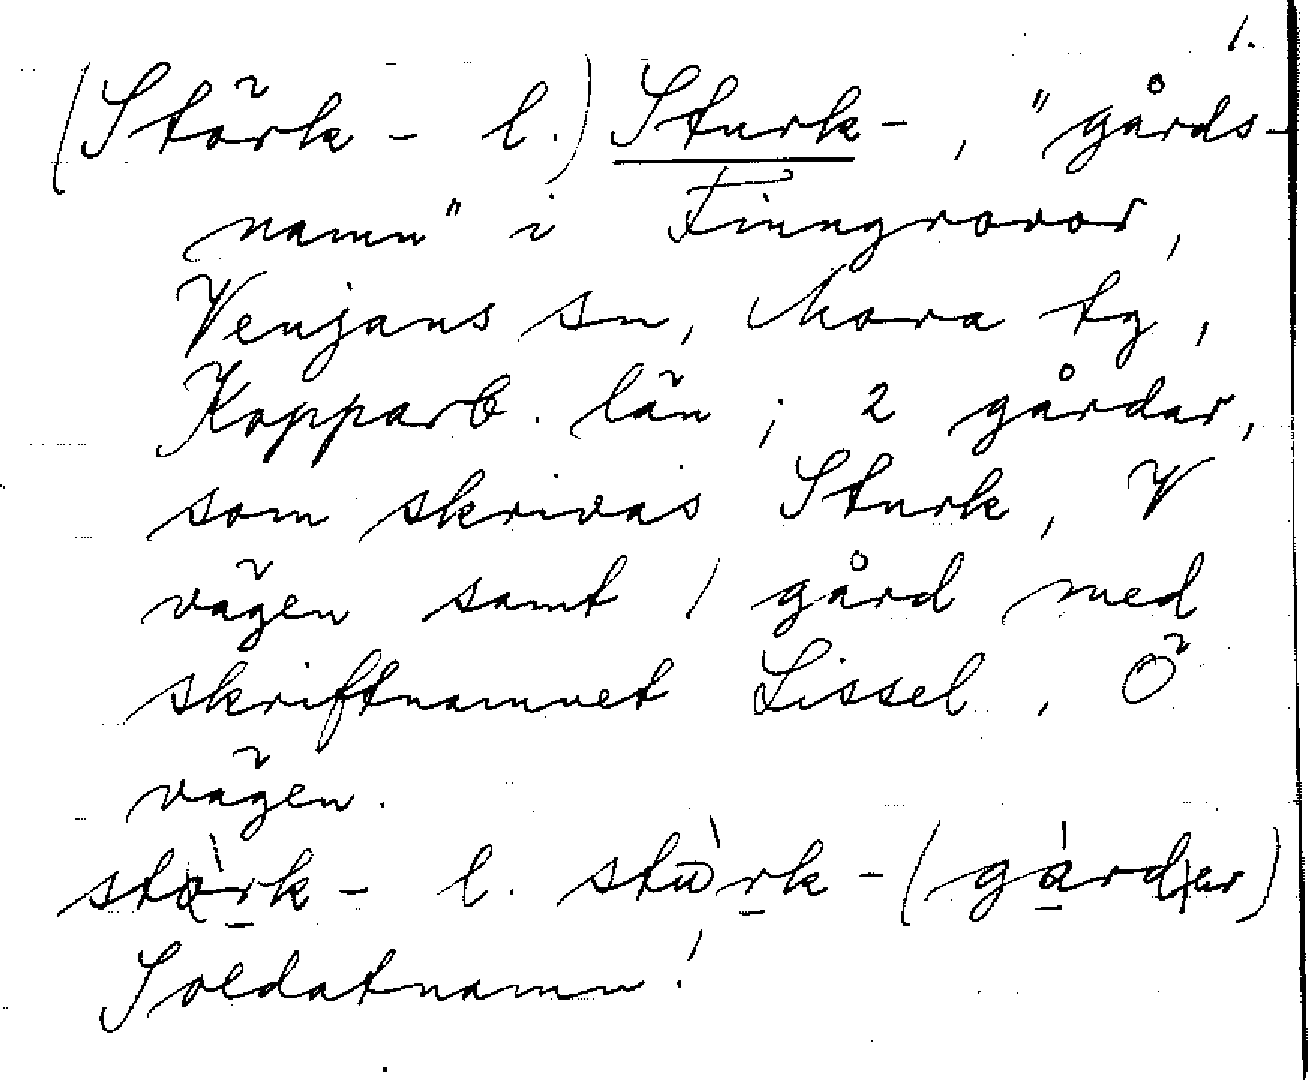 1.
(Störk- l.) Sturk-, "gårds-
namn" i Finngrovor,
Venjans sn, Mora tg,
Kopparb. län; 2 gårdar,
som skrivas Sturk, V
vägen samt 1 gård med
skriftnamnet Lissel, Ö
vägen.
l.
Soldatnamn!